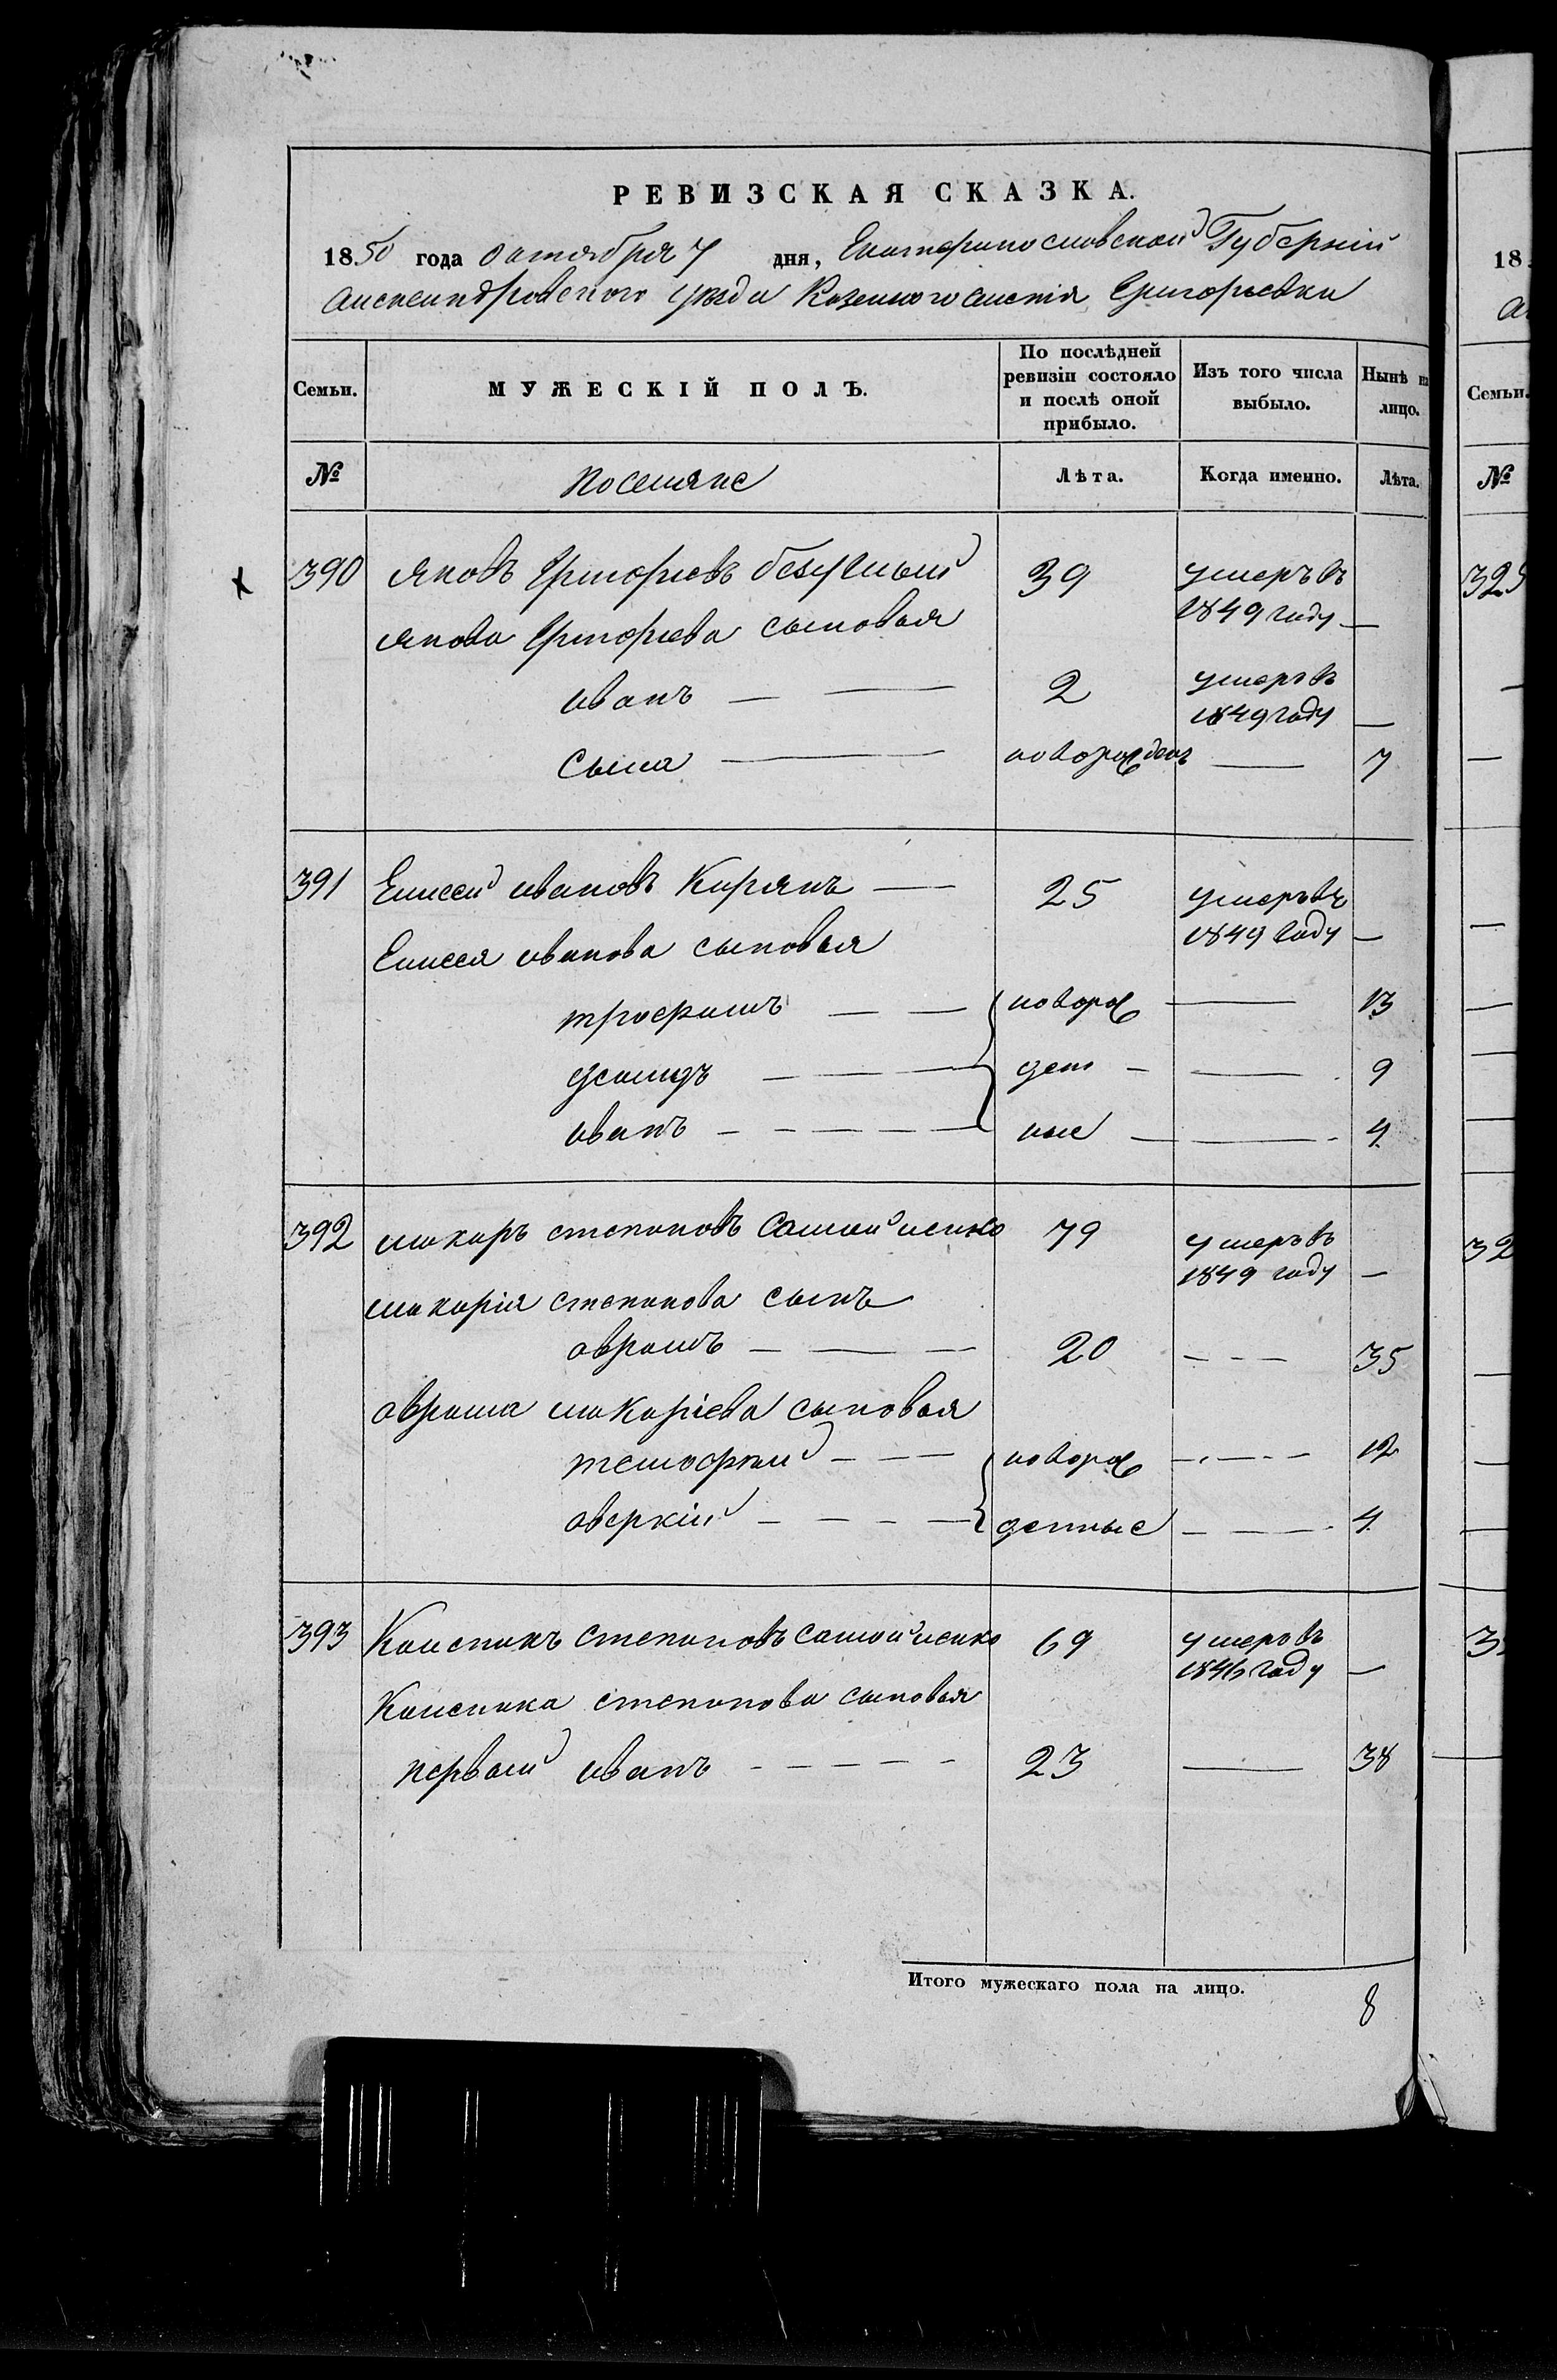 РЕВИЗСКАЯ СКАЗКА.
1850 года октября 7 дня, Екатеринославской Губерніи
Александровского уезда Казенного селенія Григорьевки
Семьи. МУЖЕСКІЙ ПОЛЪ. По послѣдней ревизіи состояло и послѣ оной прибыло. Изъ того числа выбыло. Нынѣ на лицо.
№ поселяне Лѣта. Когда именно. Лѣта.
390 яковъ Григорьевъ безуглый 39 умеръ въ 1849 году —
якова Григорьева сыновья
иванъ — — 2 умеръ въ 1849 году —
сыла — новорожденъ — 7
391 Елисей ивановъ Кирянъ — 25 умеръ въ 1849 году —
Елисея иванова сыновья
трофимъ — — новорож — 13
демидъ — — ден — — 9
иванъ — — — — ные — — 4
392 макаръ степановъ самойленко 79 умеръ въ 1849 году —
макарія степанова сынъ
аврамъ — — — 20 — — — 35
аврама макаріева сыновья
тимофей — — — новорож — — — 12
аверкій — — — — денные — — — 4
393 степановъ самойленко 69 умеръ въ 1846 году —
степанова сыновья
первый иванъ — — — — 23 — 38
Итого мужескаго пола на лицо. 8
18
Семьи.
№